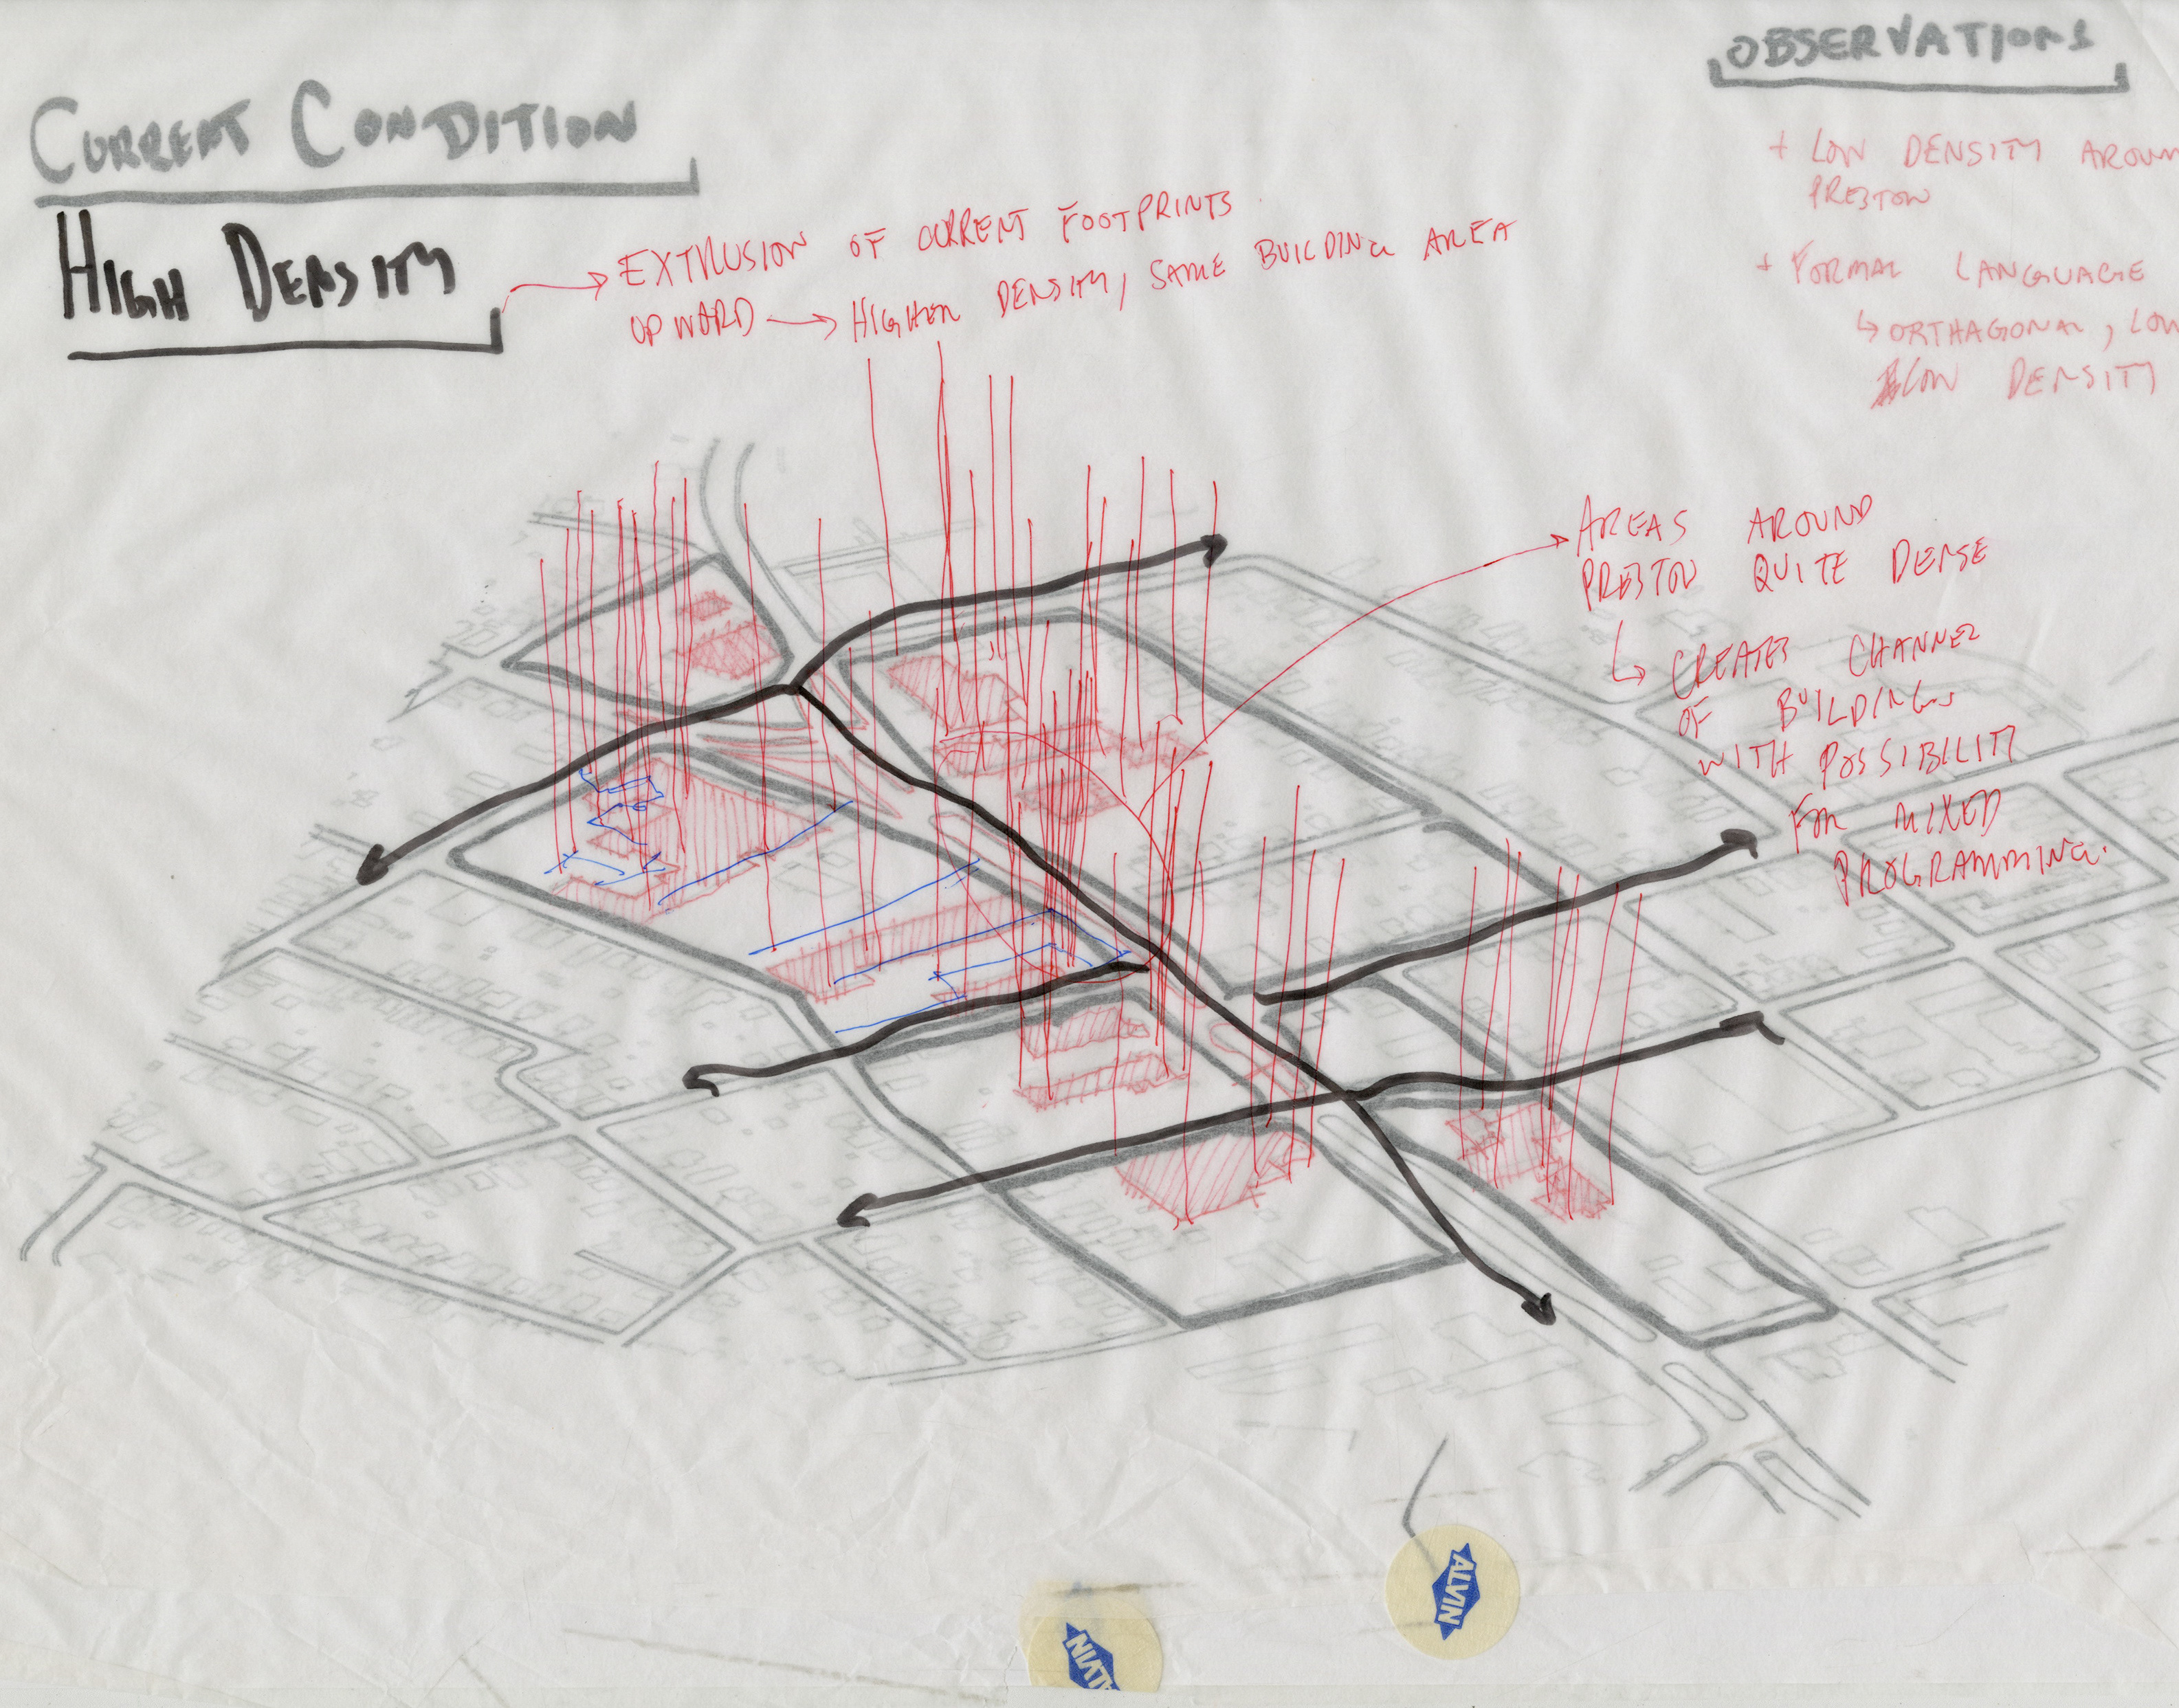 CURRENT CONDITION
HIGH DENSITY
EXTRUSION OF CURRENT FOOTPRINTS
UPWARD → HIGHER DENSITY, SAME BUILDING AREA
OBSERVATIONS
+ LOW DENSITY AROUN
PRESTON
+ FORMAL LANGUAGE
↳ ORTHAGONAL, LOW
LOW DENSITY
AREAS AROUND
PRESTON QUITE DENSE
↳ CREATES CHANNEL
OF BUILDINGS
WITH POSSIBILITY
FOR MIXED
PROGRAMMING.
ALVIN
ALVIN